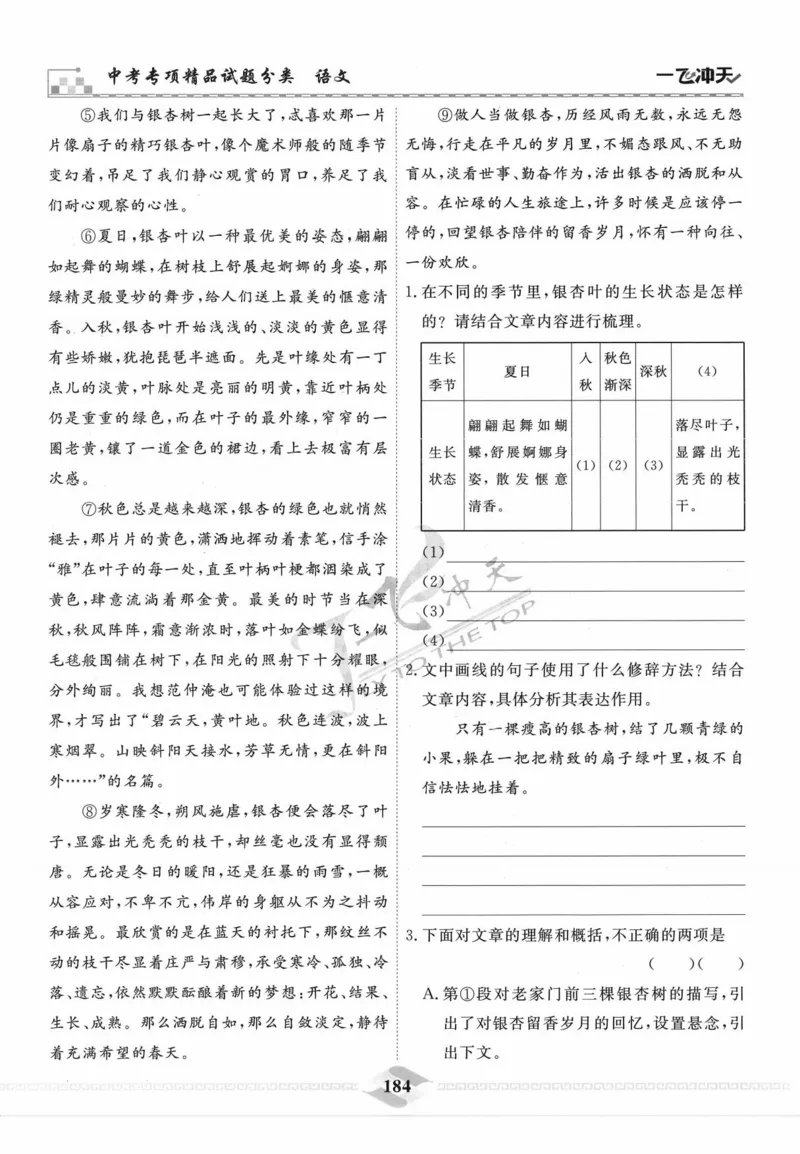 中考专项精品试题分类 语文
一飞冲天
⑤我们与银杏树一起长大了,忒喜欢那一片
片像扇子的精巧银杏叶,像个魔术师般的随季节
变幻着,吊足了我们静心观赏的胃口,养足了我
们耐心观察的心性。
⑥夏日,银杏叶以一种最优美的姿态,翩翩
如起舞的蝴蝶,在树枝上舒展起婀娜的身姿,那
绿精灵般曼妙的舞步,给人们送上最美的惬意清
香。入秋,银杏叶开始浅浅的、淡淡的黄色显得
有些娇嫩,犹抱琵琶半遮面。先是叶缘处有一丁
点儿的淡黄,叶脉处是亮丽的明黄,靠近叶柄处
仍是重重的绿色,而在叶子的最外缘,窄窄的一
圈老黄,镶了一道金色的裙边,看上去极富有层
次感。
⑦秋色总是越来越深,银杏的绿色也就悄然
褪去,那片片的黄色,潇洒地挥动着素笔,信手涂
“雅”在叶子的每一处,直至叶柄叶梗都洇染成了
黄色,肆意流淌着那金黄。最美的时节当在深
秋,秋风阵阵,霜意渐浓时,落叶如金蝶纷飞,似
毛毯般围铺在树下,在阳光的照射下十分耀眼,
分外绚丽。我想范仲淹也可能体验过这样的境
界,才写出了“碧云天,黄叶地。秋色连波,波上
寒烟翠。山映斜阳天接水,芳草无情,更在斜阳
外……”的名篇。
⑧岁寒隆冬,朔风施虐,银杏便会落尽了叶
子,显露出光秃秃的枝干,却丝毫也没有显得颓
唐。无论是冬日的暖阳,还是狂暴的雨雪,一概
从容应对,不卑不亢,伟岸的身躯从不为之抖动
和摇晃。最欣赏的是在蓝天的衬托下,那纹丝不
动的枝干尽显着庄严与肃穆,承受寒冷、孤独、冷
落、遗忘,依然默默酝酿着新的梦想:开花、结果、
生长、成熟。那么洒脱自如,那么自敛淡定,静待
着充满希望的春天。
⑨做人当做银杏,历经风雨无数,永远无怨
无悔,行走在平凡的岁月里,不媚态跟风、不无助
盲从,淡看世事、勤奋作为,活出银杏的洒脱和从
容。在忙碌的人生旅途上,许多时候是应该停一
停的,回望银杏陪伴的留香岁月,怀有一种向往、
一份欢欣。
1. 在不同的季节里,银杏叶的生长状态是怎样
的?请结合文章内容进行梳理。
生长季节 夏日 入秋 秋色渐深 深秋 (4)
生长状态 翩翩起舞如蝴蝶,舒展婀娜身姿,散发惬意清香。 (1) (2) (3) 落尽叶子,显露出光秃秃的枝干。
(1)
(2)
(3)
(4)
2. 文中画线的句子使用了什么修辞方法?结合
文章内容,具体分析其表达作用。
只有一棵瘦高的银杏树,结了几颗青绿的
小果,躲在一把把精致的扇子绿叶里,极不自
信怯怯地挂着。
3. 下面对文章的理解和概括,不正确的两项是
( )( )
A. 第①段对老家门前三棵银杏树的描写,引
出了对银杏留香岁月的回忆,设置悬念,引
出下文。
184